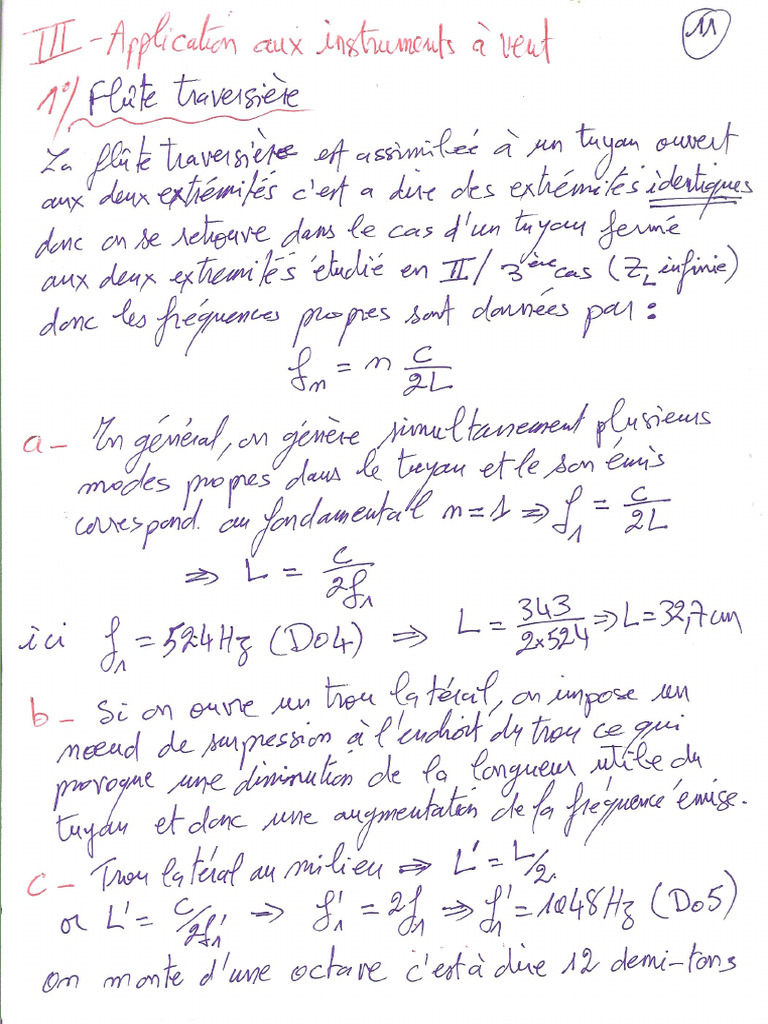 III - Application aux instruments à vent
11
1°/ Flûte traversière
La flûte traversière est assimilée à un tuyau ouvert
aux deux extrémités c'est a dire des extrémités identiques
donc on se retrouve dans le cas d'un tuyau fermé
aux deux extremités étudié en II/ 3ère cas (Z_L infinie)
donc les fréquences propres sont données par :
f_n = n C/2L
a - En général, on génère simultannement plusieurs
modes propres dans le tuyau et le son émis
correspond au fondamental n=1 ⇒ f_1 = C/2L
⇒ L = C/2f_1
ici f_1 = 524 Hz (Do4) ⇒ L = 343/2x524 ⇒ L = 32,7 cm
b - Si on ouvre un trou latéral, on impose un
nœud de surpression à l'endroit du trou ce qui
provoque une diminution de la longueur utile du
tuyau et donc une augmentation de la fréquence émise.
c - Trou latéral au milieu ⇒ L' = L/2.
or L' = C/2f'_1 ⇒ f'_1 = 2f_1 ⇒ f'_1 = 1048 Hz (Do5)
On monte d'une octave c'est à dire 12 demi-tons